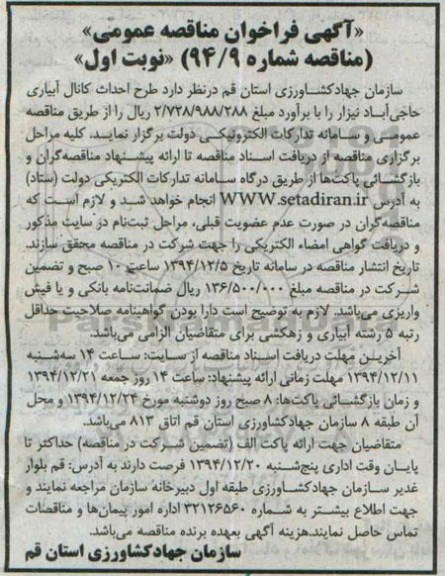 «آگهی فراخوان مناقصه عمومی»
(مناقصه شماره ۹۴/۹) «نوبت اول»
سازمان جهادکشاورزی استان قم درنظر دارد طرح احداث کانال آبیاری
حاجی‌آباد نیزار را با برآورد مبلغ ۲/۷۲۸/۹۸۸/۲۸۸ ریال را از طریق مناقصه
عمومی و سامانه تدارکات الکترونیکی دولت برگزار نماید. کلیه مراحل
برگزاری مناقصه از دریافت اسناد مناقصه تا ارائه پیشنهاد مناقصه‌گران و
بازگشائی پاکت‌ها از طریق درگاه سامانه تدارکات الکتریکی دولت (ستاد)
به آدرس WWW.setadiran.ir انجام خواهد شد و لازم است که
مناقصه‌گران در صورت عدم عضویت قبلی، مراحل ثبت‌نام در سایت مذکور
و دریافت گواهی امضاء الکتریکی را جهت شرکت در مناقصه محقق سازند.
تاریخ انتشار مناقصه در سامانه تاریخ ۱۳۹۴/۱۲/۵ ساعت ۱۰ صبح و تضمین
شرکت در مناقصه مبلغ ۱۳۶/۵۰۰/۰۰۰ ریال ضمانتنامه بانکی و یا فیش
واریزی می‌باشد. لازم به توضیح است دارا بودن گواهینامه صلاحیت حداقل
رتبه ۵ رشته آبیاری و زهکشی برای متقاضیان الزامی می‌باشد.
آخرین مهلت دریافت اسناد مناقصه از سایت: ساعت ۱۴ سه‌شنبه
۱۳۹۴/۱۲/۱۱ مهلت زمانی ارائه پیشنهاد: ساعت ۱۴ روز جمعه ۱۳۹۴/۱۲/۲۱
و زمان بازگشائی پاکت‌ها: ۸ صبح روز دوشنبه مورخ ۱۳۹۴/۱۲/۲۴ و محل
آن طبقه ۸ سازمان جهادکشاورزی استان قم اتاق ۸۱۳ می‌باشد.
متقاضیان جهت ارائه پاکت الف (تضمین شرکت در مناقصه) حداکثر تا
پایان وقت اداری پنج‌شنبه ۱۳۹۴/۱۲/۲۰ فرصت دارند به آدرس: قم بلوار
غدیر سازمان جهادکشاورزی طبقه اول دبیرخانه سازمان مراجعه نمایند و
جهت اطلاع بیشتر به شماره ۳۲۱۲۶۵۶۰ اداره امور پیمان‌ها و مناقصات
تماس حاصل نمایند.هزینه آگهی بعهده برنده مناقصه می‌باشد.
سازمان جهادکشاورزی استان قم